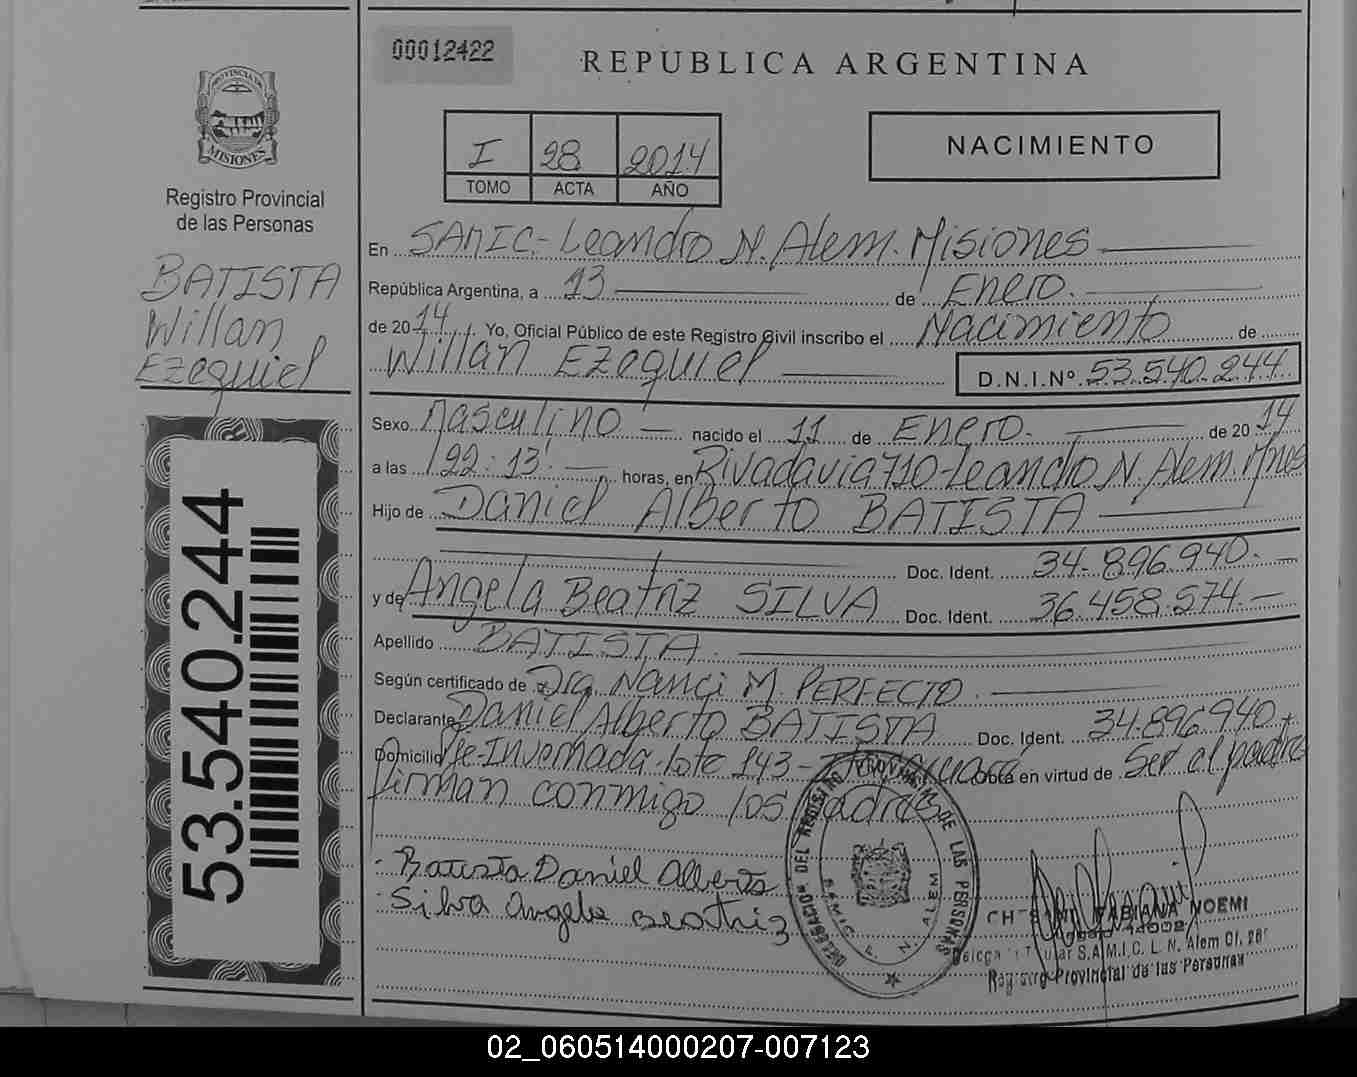 00012422
REPUBLICA ARGENTINA
PROVINCIA DE
MISIONES
Registro Provincial
de las Personas
BATISTA
Willan
Ezequiel
53.540.244
I 28 2014
TOMO ACTA AÑO
NACIMIENTO
En SAMIC-Leandro N. Alem. Misiones
República Argentina, a 13 de Enero.
de 2014, Yo, Oficial Público de este Registro Civil inscribo el Nacimiento de
Willan Ezequiel D.N.I.Nº 53.540.244
Sexo Masculino nacido el 11 de Enero. de 2014
a las 22:13 horas, en Rivadavia 710-Leandro N. Alem. Mnes
Hijo de Daniel Alberto BATISTA
Doc. Ident. 34.896.940.-
y de Angela Beatriz SILVA Doc. Ident. 36.458.574.-
Apellido BATISTA.
Según certificado de Dra. Nanci M. PERFECTO.
Declarante Daniel Alberto BATISTA Doc. Ident. 34.896.940
Domicilio Invernada lote 143- Obra en virtud de Ser el padre
firman conmigo los padres
Batista Daniel Alberto
Silva Angela Beatriz
DELEGACION DEL REGISTRO PROVINCIAL DE LAS PERSONAS
SAMIC L. N. ALEM
FABIANA NOEMI
Titular S.A.M.I.C. L. N. Alem Of. 28
Registro Provincial de las Personas
02_060514000207-007123